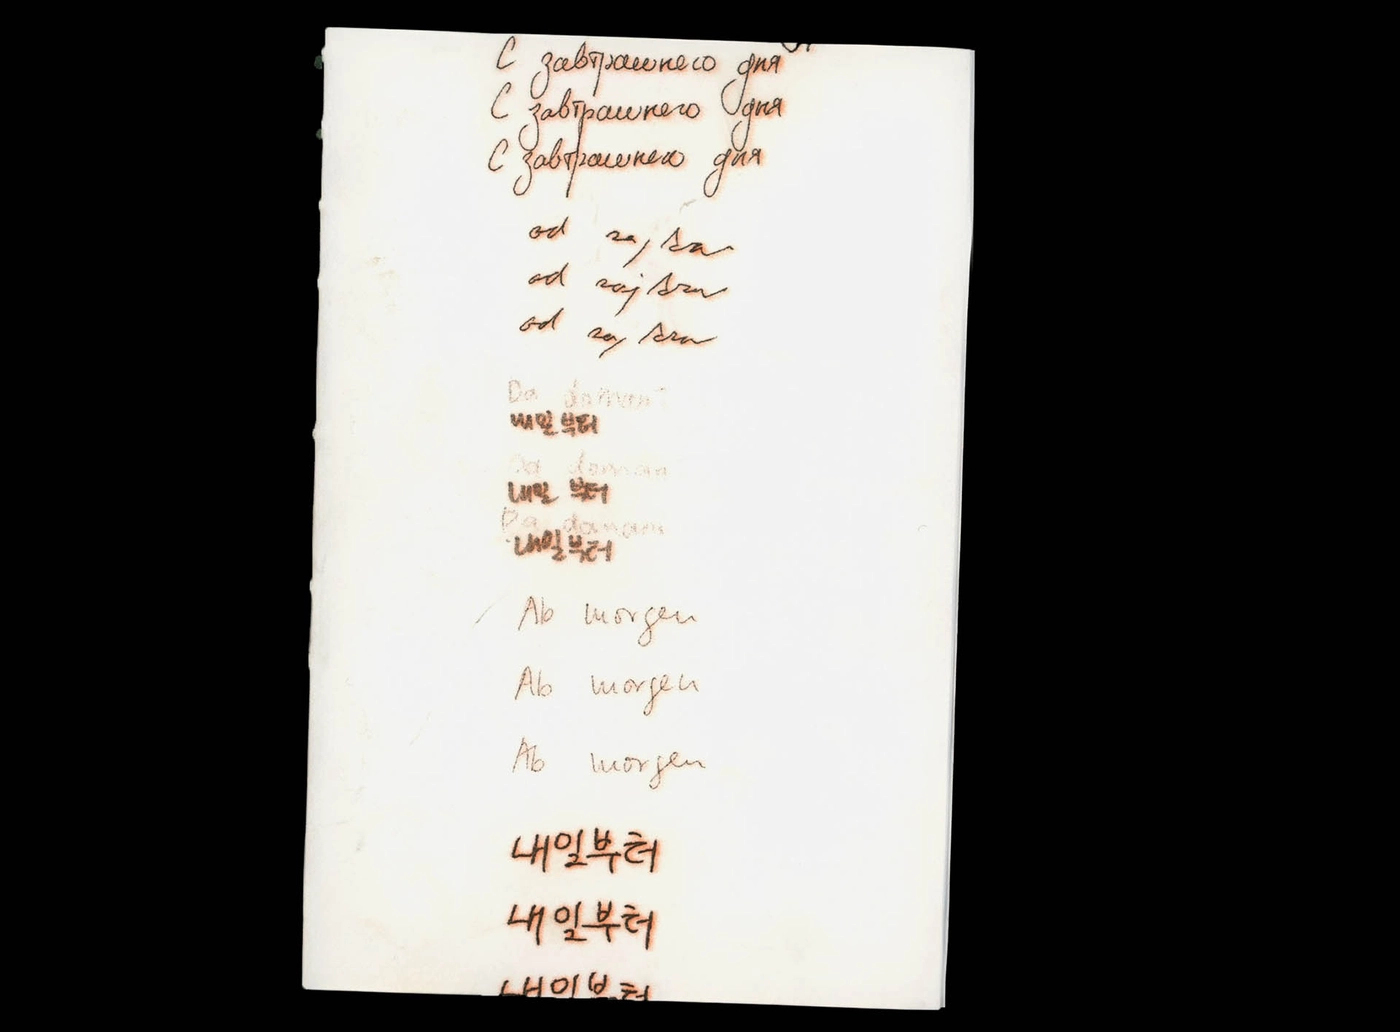 С завтрашнего дня
С завтрашнего дня
С завтрашнего дня
od zajtra
od zajtra
od zajtra
Da domani
내일부터
Da domani
내일부터
Da domani
내일부터
Ab morgen
Ab morgen
Ab morgen
내일부터
내일부터
내일부터